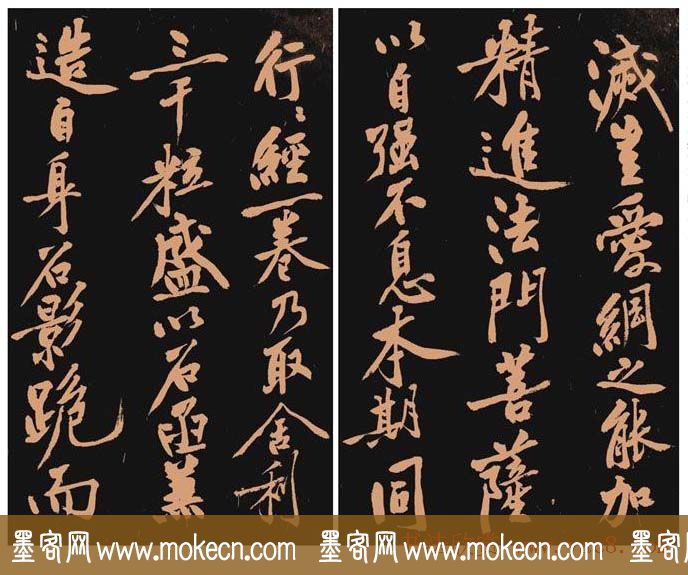 滅豈愛網之能加
精進法門菩薩
以自强不息本期同
行〻經一卷乃取舍利
三千粒盛以石函兼
造自身石影跪而
墨客网 www.mokecn.com 墨客网 www.mokecn.com 墨客网